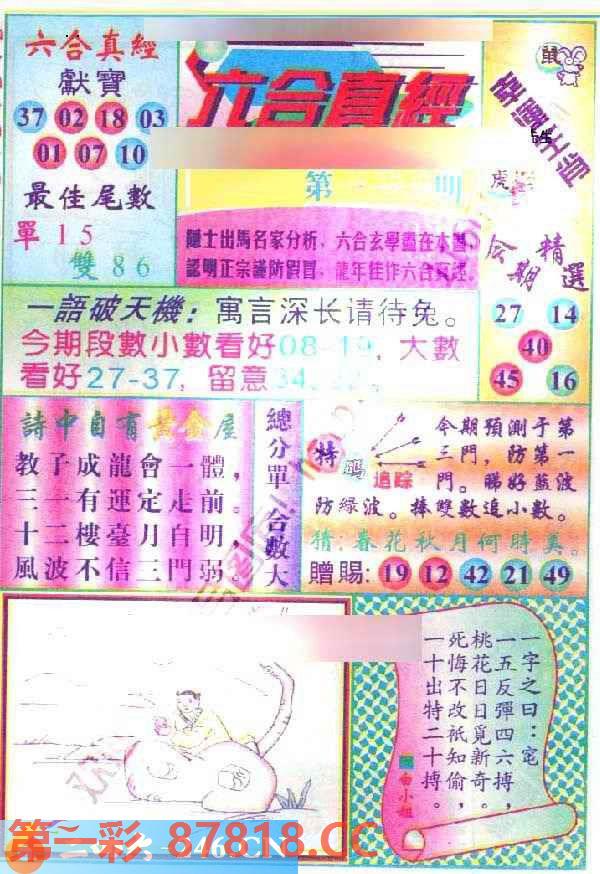 六合真經
獻寶
37 02 18 03
01 07 10
最佳尾數
單 15
雙 86
六合真經
第
鼠
虎
隱士出馬名家分析，六合玄學盡在本圖，
認明正宗謹防假冒，龍年佳作六合真經。
今期
精選
27 14
40
45 16
一語破天機：寓言深长请待兔。
今期段數小數看好08-19，大數
看好27-37，留意
詩中自有黃金屋
教子成龍會一體，
三一有運定走前。
十二樓臺月自明，
風波不信三門弱。
總分單
合數大
特碼
追踪
今期預測于第
三門，防第一
門。睇好藍波
防綠波。捧雙數追小數。
猜:春花秋月何時美。
贈賜: 19 12 42 21 49
一字之曰：宅
一五反彈四六搏，
桃花日日覓新奇。
死悔不改祇知偷，
一十出特二十搏。
白小姐
第一彩 87818.CC